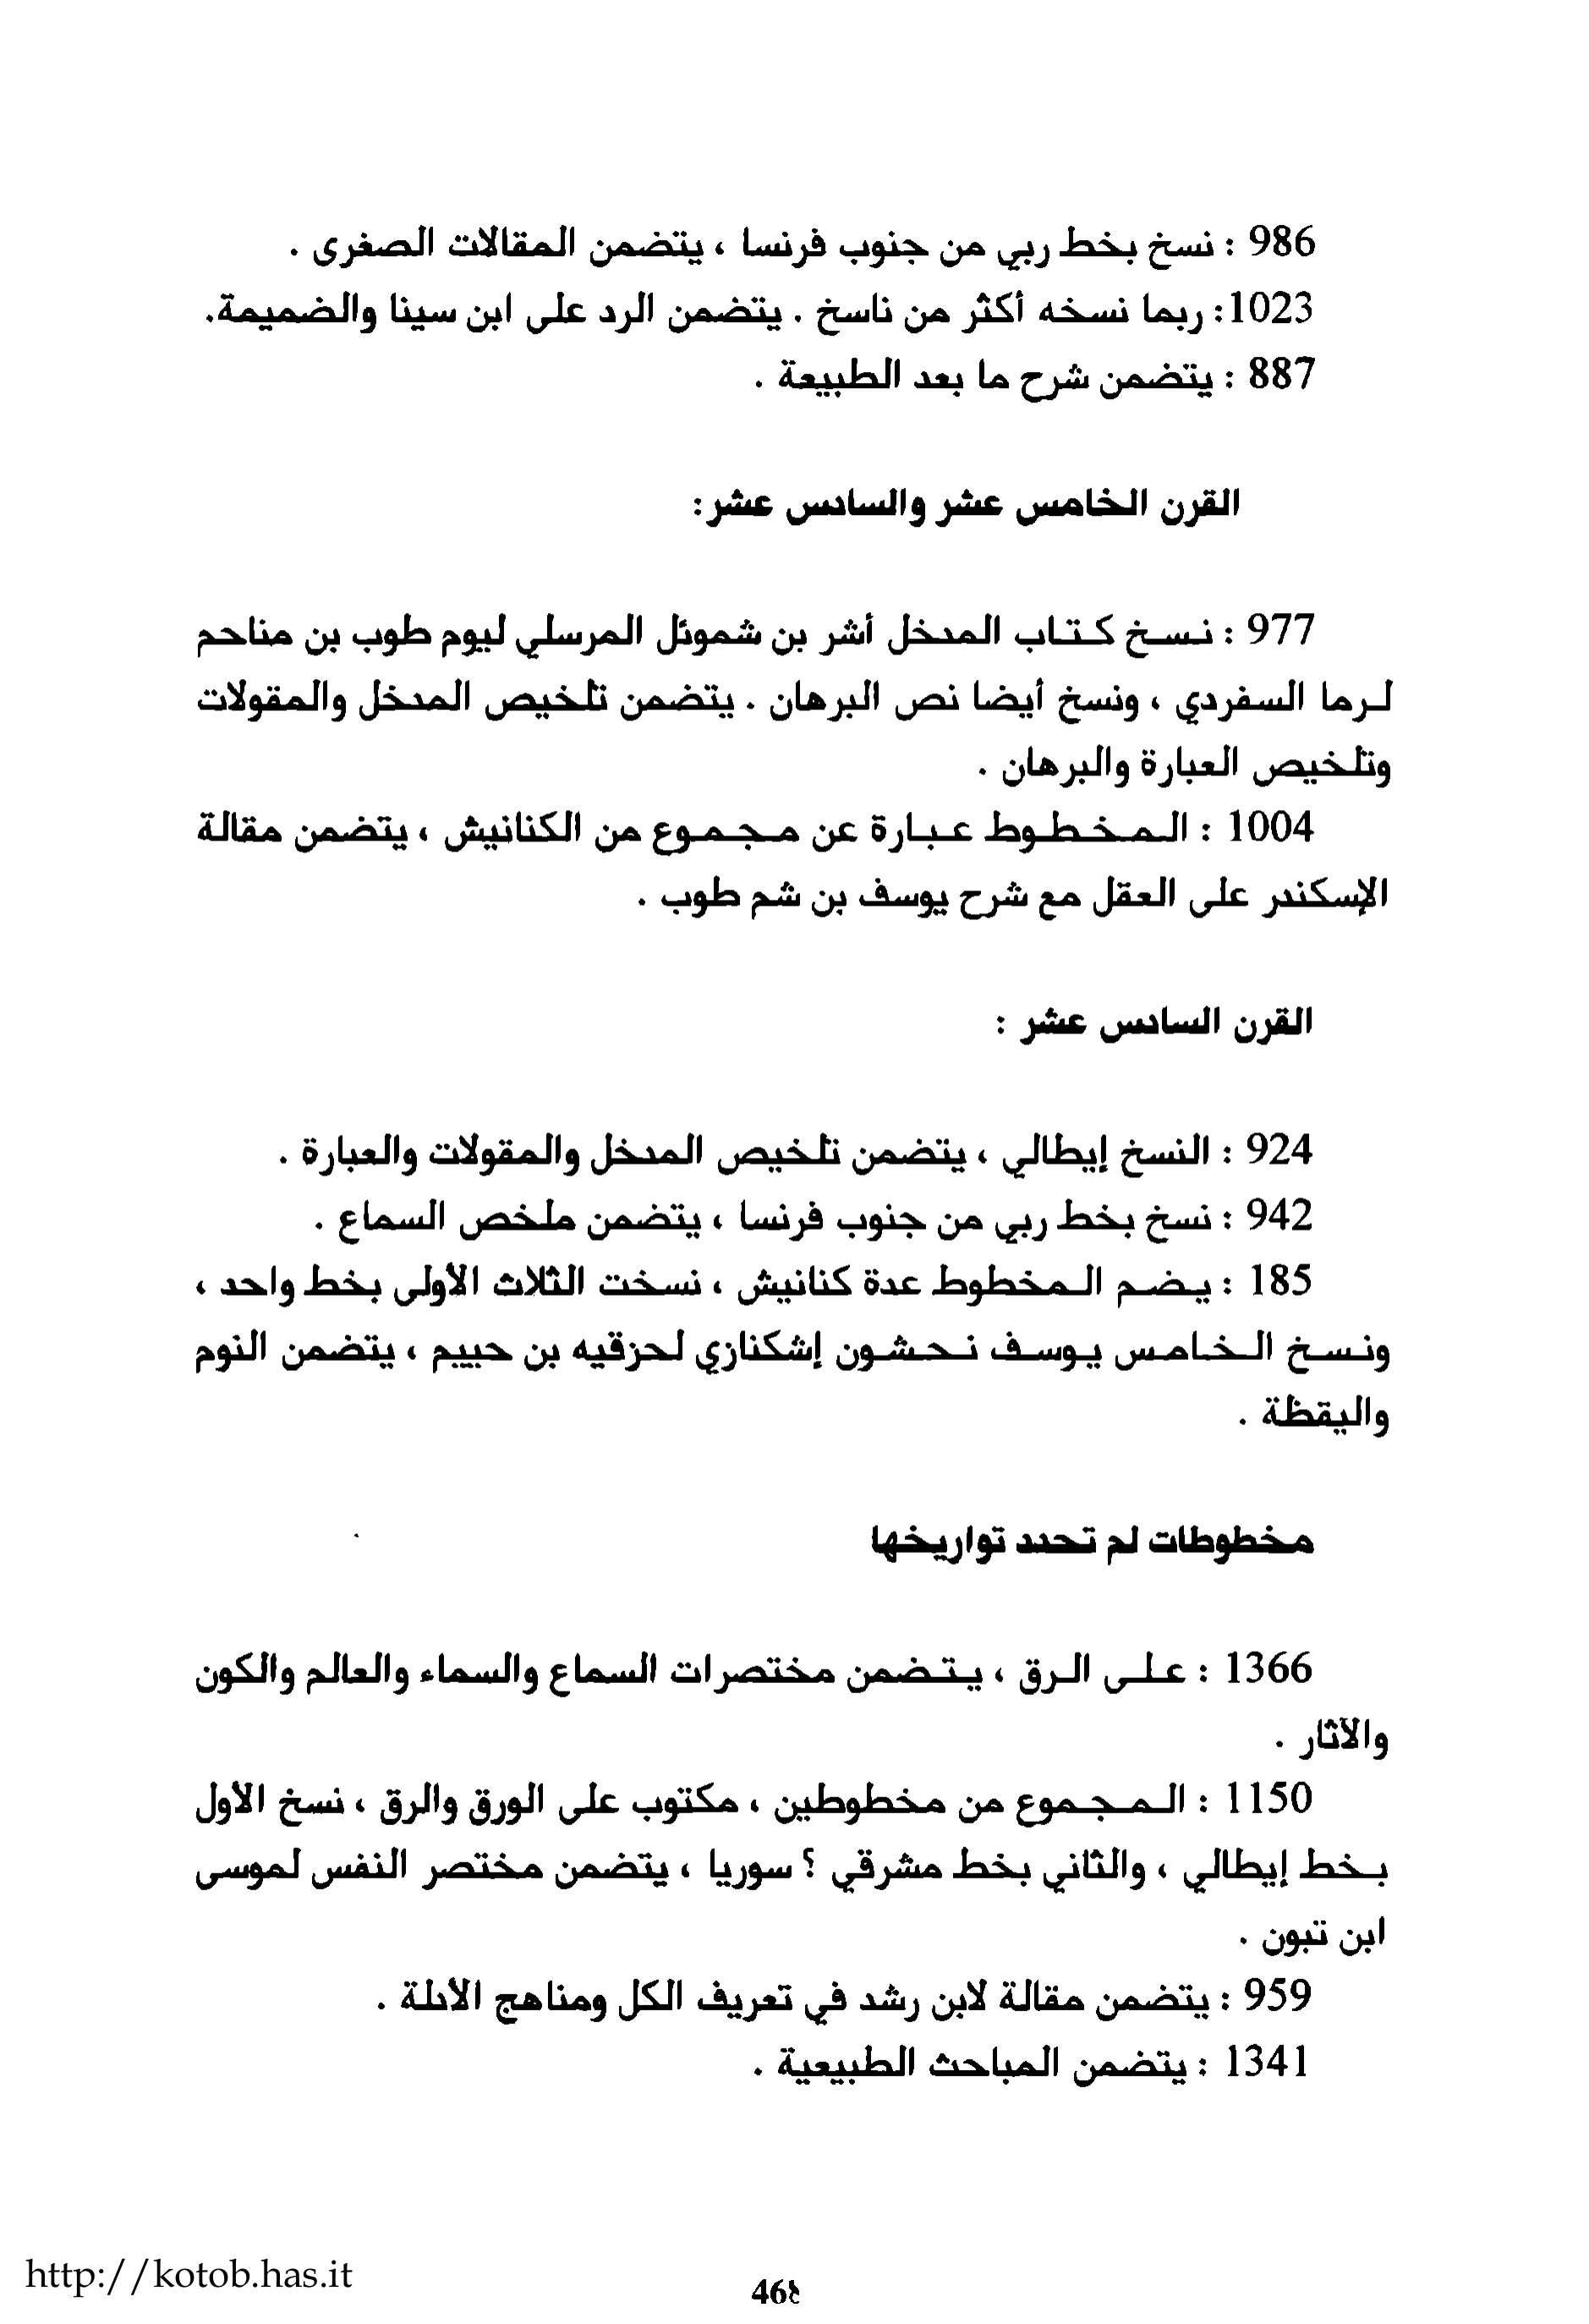 986 : نسخ بخط ربي من جنوب فرنسا ، يتضمن المقالات الصغرى .
1023: ربما نسخه أكثر من ناسخ . يتضمن الرد على ابن سينا والضميمة.
887 : يتضمن شرح ما بعد الطبيعة .
القرن الخامس عشر والسادس عشر:
977 : نسخ كتاب المدخل أشر بن شموئل المرسلي ليوم طوب بن مناحم
لرما السفردي ، ونسخ أيضا نص البرهان . يتضمن تلخيص المدخل والمقولات
وتلخيص العبارة والبرهان .
1004 : المخطوط عبارة عن مجموع من الكنانيش ، يتضمن مقالة
الإسكندر على العقل مع شرح يوسف بن شم طوب .
القرن السادس عشر :
924 : النسخ إيطالي ، يتضمن تلخيص المدخل والمقولات والعبارة .
942 : نسخ بخط ربي من جنوب فرنسا ، يتضمن ملخص السماع .
185 : يضم المخطوط عدة كنانيش ، نسخت الثلاث الأولى بخط واحد ،
ونسخ الخامس يوسف نحشون إشكنازي لحزقيه بن حييم ، يتضمن النوم
واليقظة .
مخطوطات لم تحدد تواريخها
1366 : على الرق ، يتضمن مختصرات السماع والسماء والعالم والكون
والآثار .
1150 : المجموع من مخطوطين ، مكتوب على الورق والرق ، نسخ الأول
بخط إيطالي ، والثاني بخط مشرقي ؟ سوريا ، يتضمن مختصر النفس لموسى
ابن تبون .
959 : يتضمن مقالة لابن رشد في تعريف الكل ومناهج الأدلة .
1341 : يتضمن المباحث الطبيعية .
http://kotob.has.it
468